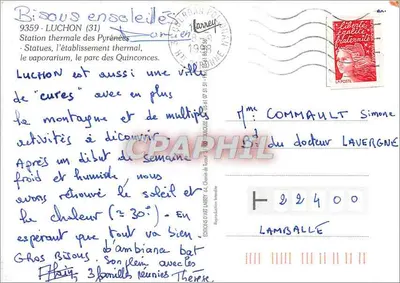 Bisous ensoleillés
9359 - LUCHON (31)
Station thermale des Pyrénées
- Statues, l'établissement thermal,
le vaporarium, le parc des Quinconces.
LUCHON est aussi une ville
de "cures" avec en plus
la montagne et de multiples
activités à découvrir.
Après un début de semaine
froid et humide, nous
avons retrouvé le soleil et
la chaleur (≃ 30°) - En
espérant que tout va bien.
d'ambiana bat
GROS BISOUS. Son plein avec les
Alain, 3 familles réunies Thérèse
Larrey
Reproduction interdite
liberté
égalité
fraternité
LA POSTE
Mme COMMAULT Simone
du docteur LAVERGNE
22400
LAMBALLE
CPAPHIL